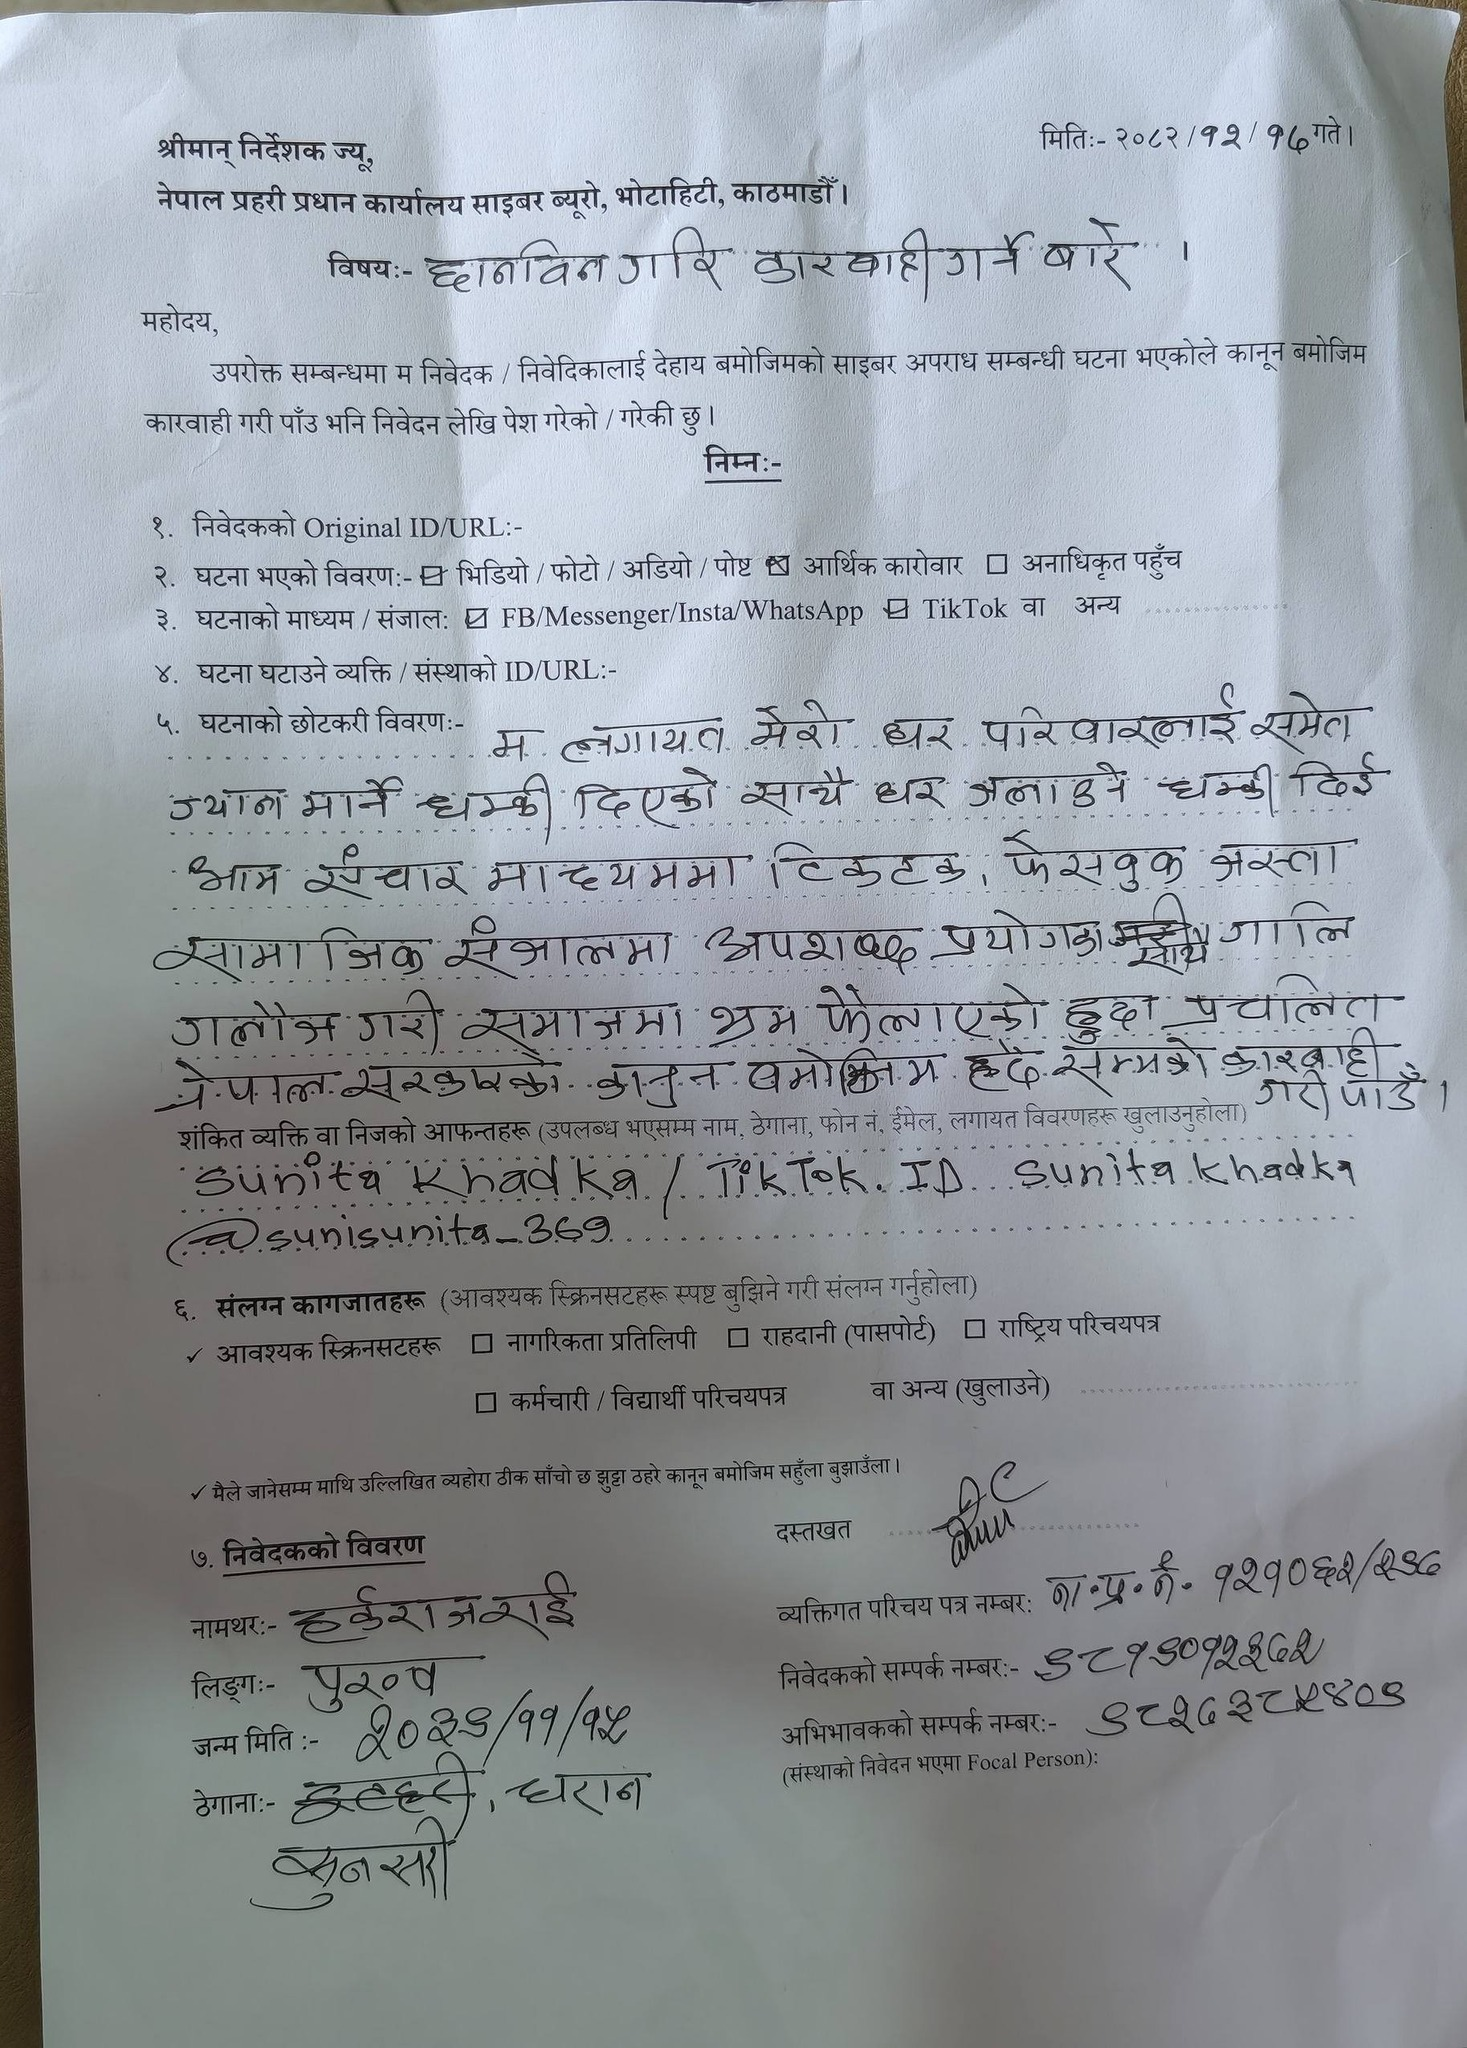 मितिः- २०८२/१२/१७ गते।
श्रीमान् निर्देशक ज्यू,
नेपाल प्रहरी प्रधान कार्यालय साइबर ब्यूरो, भोटाहिटी, काठमाडौँ।
विषयः- छानविन गरि कारवाही गर्ने बारे ।
महोदय,
उपरोक्त सम्बन्धमा म निवेदक / निवेदिकालाई देहाय बमोजिमको साइबर अपराध सम्बन्धी घटना भएकोले कानून बमोजिम
कारवाही गरी पाँउ भनि निवेदन लेखि पेश गरेको / गरेकी छु।
निम्नः-
१. निवेदकको Original ID/URL:-
२. घटना भएको विवरण:- ☑ भिडियो / फोटो / अडियो / पोष्ट ☒ आर्थिक कारोवार ☐ अनाधिकृत पहुँच
३. घटनाको माध्यम / संजाल: ☑ FB/Messenger/Insta/WhatsApp ☑ TikTok वा अन्य
४. घटना घटाउने व्यक्ति / संस्थाको ID/URL:-
५. घटनाको छोटकरी विवरण:- म लगायत मेरो घर परिवारलाई समेत
ज्यान मार्ने धम्की दिएको साथै घर जलाउने धम्की दिई
आम संचार माध्यममा टिकटक, फेसवुक जस्ता
सामाजिक संजालमा अपशब्द प्रयोगका साथै गालि
गलौज गरी समाजमा भ्रम फैलाएको हुदा प्रचलित
नेपाल सरकारको कानुन बमोजिम हदै सम्मको कारवाही
गरी पाउँ।
शंकित व्यक्ति वा निजको आफन्तहरू (उपलब्ध भएसम्म नाम, ठेगाना, फोन नं, ईमेल, लगायत विवरणहरू खुलाउनुहोला)
Sunita Khadka / TikTok. ID Sunita Khadka
@sunisunita_369
६. संलग्न कागजातहरू (आवश्यक स्क्रिनसटहरू स्पष्ट बुझिने गरी संलग्न गर्नुहोला)
✓ आवश्यक स्क्रिनसटहरू ☐ नागरिकता प्रतिलिपी ☐ राहदानी (पासपोर्ट) ☐ राष्ट्रिय परिचयपत्र
☐ कर्मचारी / विद्यार्थी परिचयपत्र वा अन्य (खुलाउने)
✓ मैले जानेसम्म माथि उल्लिखित व्यहोरा ठीक साँचो छ झुट्टा ठहरे कानून बमोजिम सहुँला बुझाउँला।
दस्तखत
७. निवेदकको विवरण
नामथर:- हर्कराज राई
लिङ्गः- पुरुष
जन्म मिति :- २०३९/११/१५
ठेगाना:- इटहरी, धरान
सुनसरी
व्यक्तिगत परिचय पत्र नम्बर: ना.प्र.नं. १२१०६२/२९७
निवेदकको सम्पर्क नम्बर:- ९८१९०१२३७२
अभिभावकको सम्पर्क नम्बर:- ९८२७३८५४०९
(संस्थाको निवेदन भएमा Focal Person):